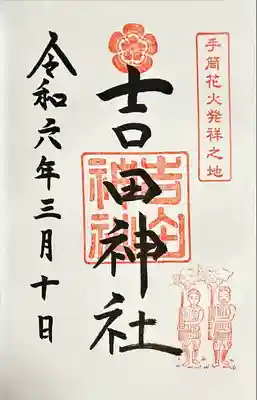 手筒花火発祥之地
吉田神社
令和六年三月十日